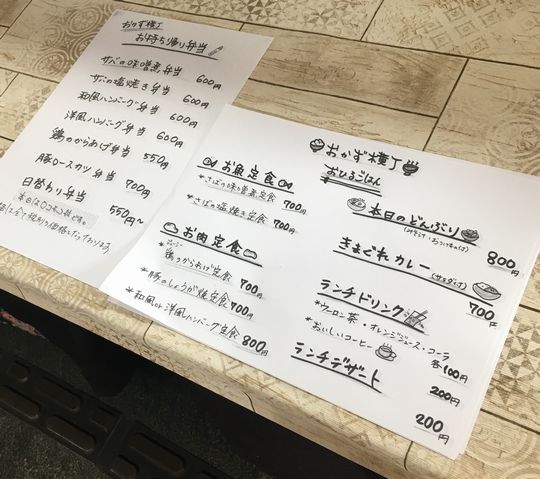 おかず横丁
お持ち帰り弁当
サバの味噌煮弁当 600円
サバの塩焼き弁当 600円
和風ハンバーグ弁当 600円
洋風ハンバーグ弁当 600円
鶏のからあげ弁当 550円
豚ロースカツ弁当 700円
日替わり弁当 550円〜
おかず横丁
おひるごはん
お魚定食
*さばの味噌煮定食 700円
*さばの塩焼き定食 700円
お肉定食
*鶏のからあげ定食 700円
*豚のしょうが焼定食 700円
*和風or洋風ハンバーグ定食 800円
本日のどんぶり
(みそ汁・おつけものつき)
800円
きまぐれカレー
(サラダつき)
700円
ランチドリンク
*ウーロン茶・オレンジジュース・コーラ
各100円
*おいしいコーヒー
200円
ランチデザート
200円